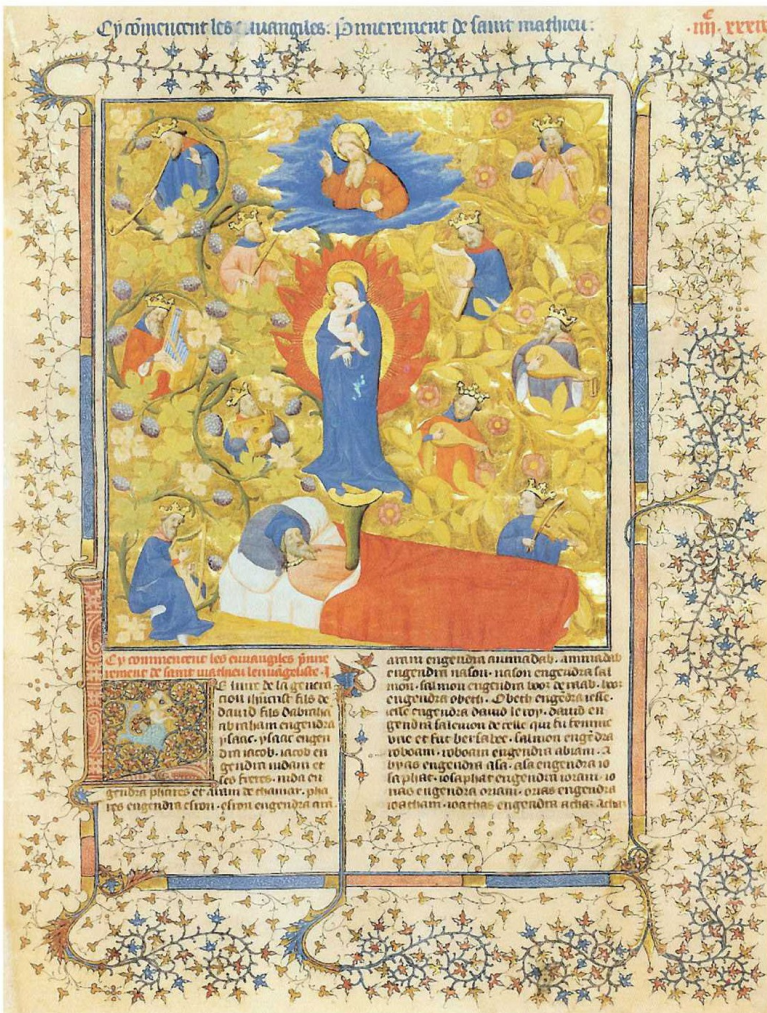 Cy cõmencent les euuangiles. P̃mierement de saint mathieu:
Cy commencent les euuangiles p̃mie
rement de saint mathieu leuuãgeliste. I
E liure de la genera
cion ihucrist filz de
dauid filz dabrahã
abraham engendra
ysaac. ysaac engen
dra iacob. iacob en
gendra iudam et
ses freres. iuda en
gendra phares et zaram de thamar. pha
res engendra esron. esron engendra ara
aram engendra aminadab. Aminadab
engendra nason. nason engendra sal
mon. salmon engendra booz de raab. booz
engendra obeth. Obeth engẽdra iesse.
iesse engendra dauid le roy. dauid en
gendra salemon de celle qui fu femme
vrie et fut bersabee. salmon engẽdra
roboam. roboam engendra abiam. A
byas engendra asa. asa engendra io
saphat. iosaphat engendra ioram. io
ras engendra oziam. ozias engendra
ioatham. ioathas engendra achaz. Achas